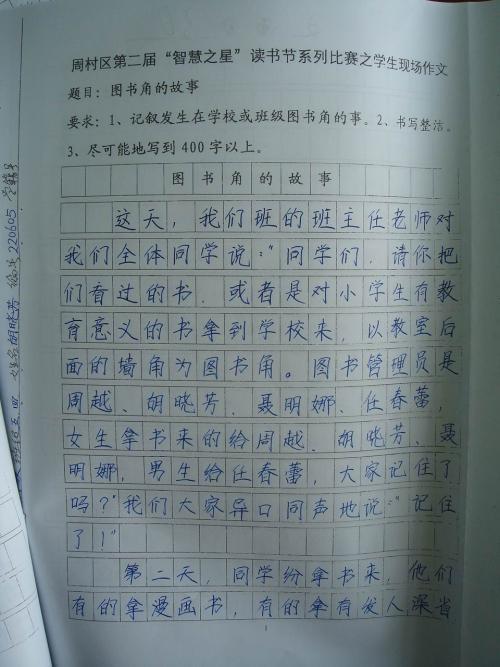 周村区第二届“智慧之星”读书节系列比赛之学生现场作文
题目：图书角的故事
要求：1、记叙发生在学校或班级图书角的事。2、书写整洁。
3、尽可能地写到 400 字以上。
图书角的故事
这天，我们班的班主任老师对
我们全体同学说：“同学们，请你把
们看过的书．或者是对小学生有教
育意义的书拿到学校来，以教室后
面的墙角为图书角。图书管理员是
周越、胡晓芳、聂明娜、任春蕾，
女生拿书来的给周越、胡晓芳、聂
明娜，男生给任春蕾，大家记住了
吗？”我们大家异口同声地说：“记住
了！”
第二天，同学纷拿书来，他们
有的拿漫画书，有的拿有发人深省
姓名胡晓芳 编号 220605
1